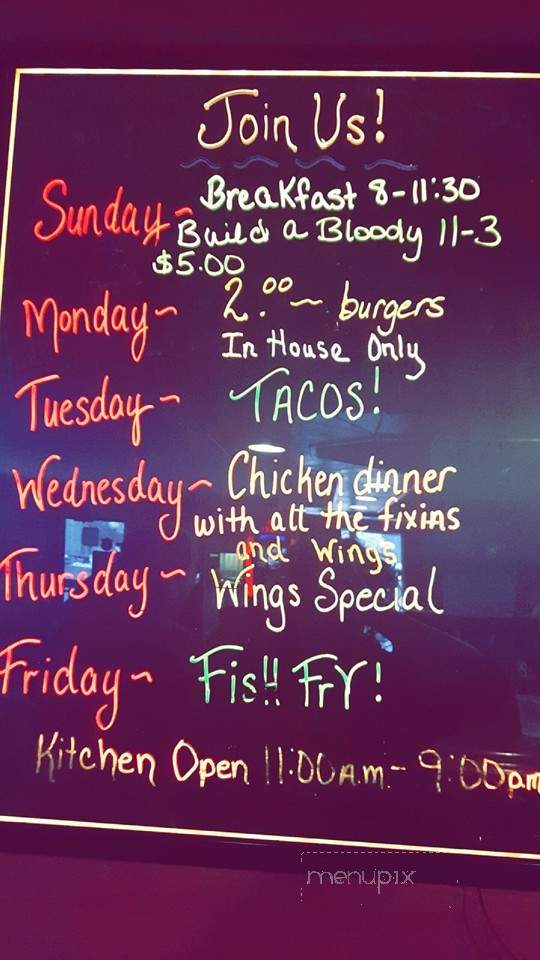 Join Us!
Sunday~ Breakfast 8-11:30
Build a Bloody 11-3
$5.00
Monday~ 2.00~ burgers
In House Only
Tuesday~ TACOS!
Wednesday~ Chicken dinner
with all the fixins
and Wings
Thursday~ Wings Special
Friday~ FisH FrY!
Kitchen Open 11:00A.m.- 9:00pm
menupix